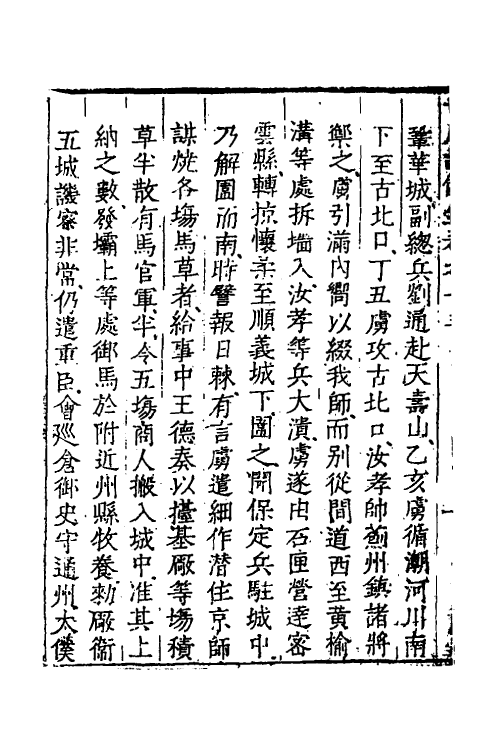 鞏華城、副總兵劉通赴天壽山、乙亥虜循潮河川南
下至古北口、丁丑虜攻古北口、汝孝帥薊州鎮諸將
禦之、虜引滿內嚮以綴我師、而别從間道西至黃榆
溝等處拆墻入、汝孝等兵大潰、虜遂由石匣營達密
雲縣、轉掠懷柔至順義城下、圍之、聞保定兵駐城中、
乃解圍而南、時警報日棘、有言虜遣細作潛住京師
謀燒各塲馬草者、給事中王德奏以擡基厰等塲積
草半散有馬官軍、半令五塲商人搬入城中、准其上
納之數、發壩上等處御馬於附近州縣牧養、勑厰衞
五城譏察非常、仍遣重臣、會巡倉御史守通州、太僕